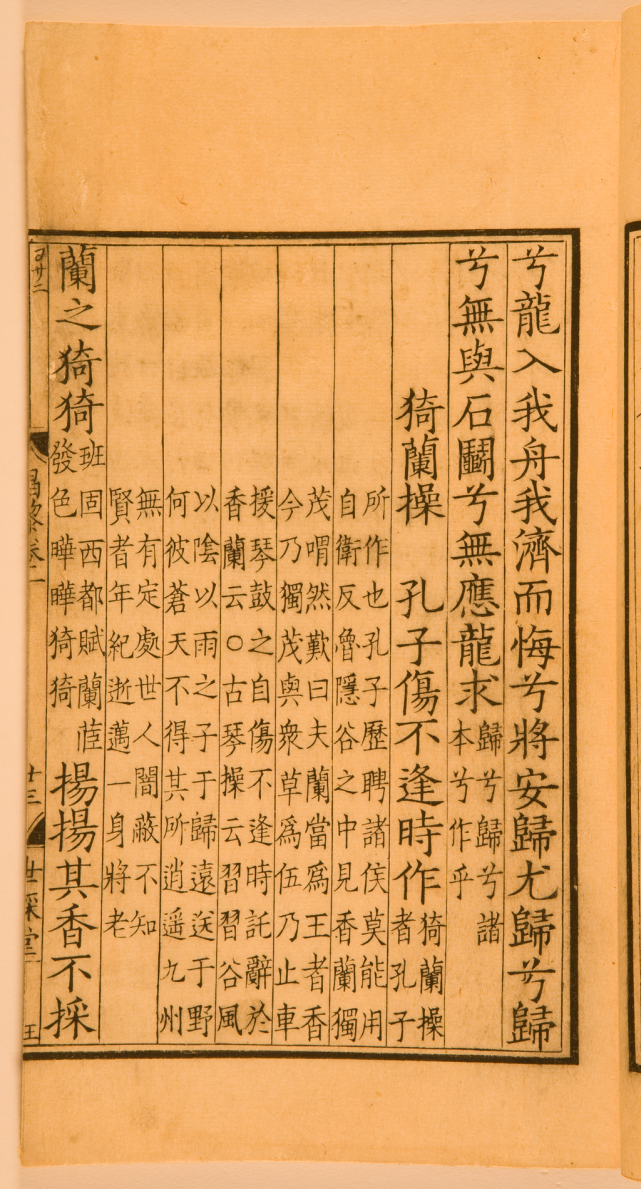 兮龍入我舟我濟而悔兮將安歸尤歸兮歸
兮無與石鬭兮無應龍求
歸兮歸兮諸
本兮作乎
猗蘭操　孔子傷不逢時作
猗蘭操
者孔子
所作也孔子歷聘諸侯莫能用
自衛反魯隱谷之中見香蘭獨
茂喟然歎曰夫蘭當爲王者香
今乃獨茂與衆草爲伍乃止車
援琴鼓之自傷不逢時託辭於
香蘭云○古琴操云習習谷風
以陰以雨之子于歸遠送于野
何彼蒼天不得其所逍遥九州
無有定處世人闇蔽不知
賢者年紀逝邁一身將老
蘭之猗猗
班固西都賦蘭茝
發色曄曄猗猗
揚揚其香不採
廿三
世綵堂
王